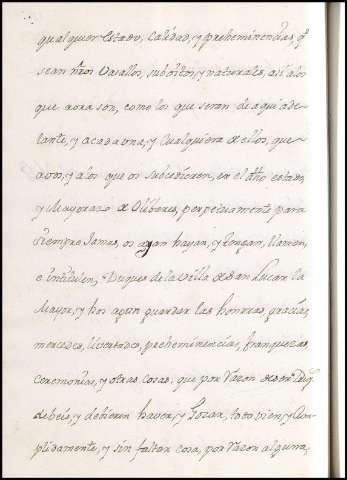 qualquier estado, calidad, y preheminencias, q̃
sean ñros Vasallos, subditos, y naturales, así a los
que aora son, como los que seran de aqui ade-
lante, y a cada una, y qualquiera de ellos, que
a vos, y a los que os subcedieren, en el dho estado,
y Mayorazgo de Olibares, perpetuamente para
siempre Jamas, os ayan hayan, y tengan, llamen,
e intitulen, Duques de la Villa de San Lucar la
Mayor, y hos agan guardar las honrras, gracias,
mercedes, livertades, preheminencias, franquezas,
ceremonias, y otras cosas, que por razon de ser Duq.
debeis, y debieren haver, y Gozar, todo vien, y Cum-
plidamente, y sin faltar cosa, por Vazon alguna,